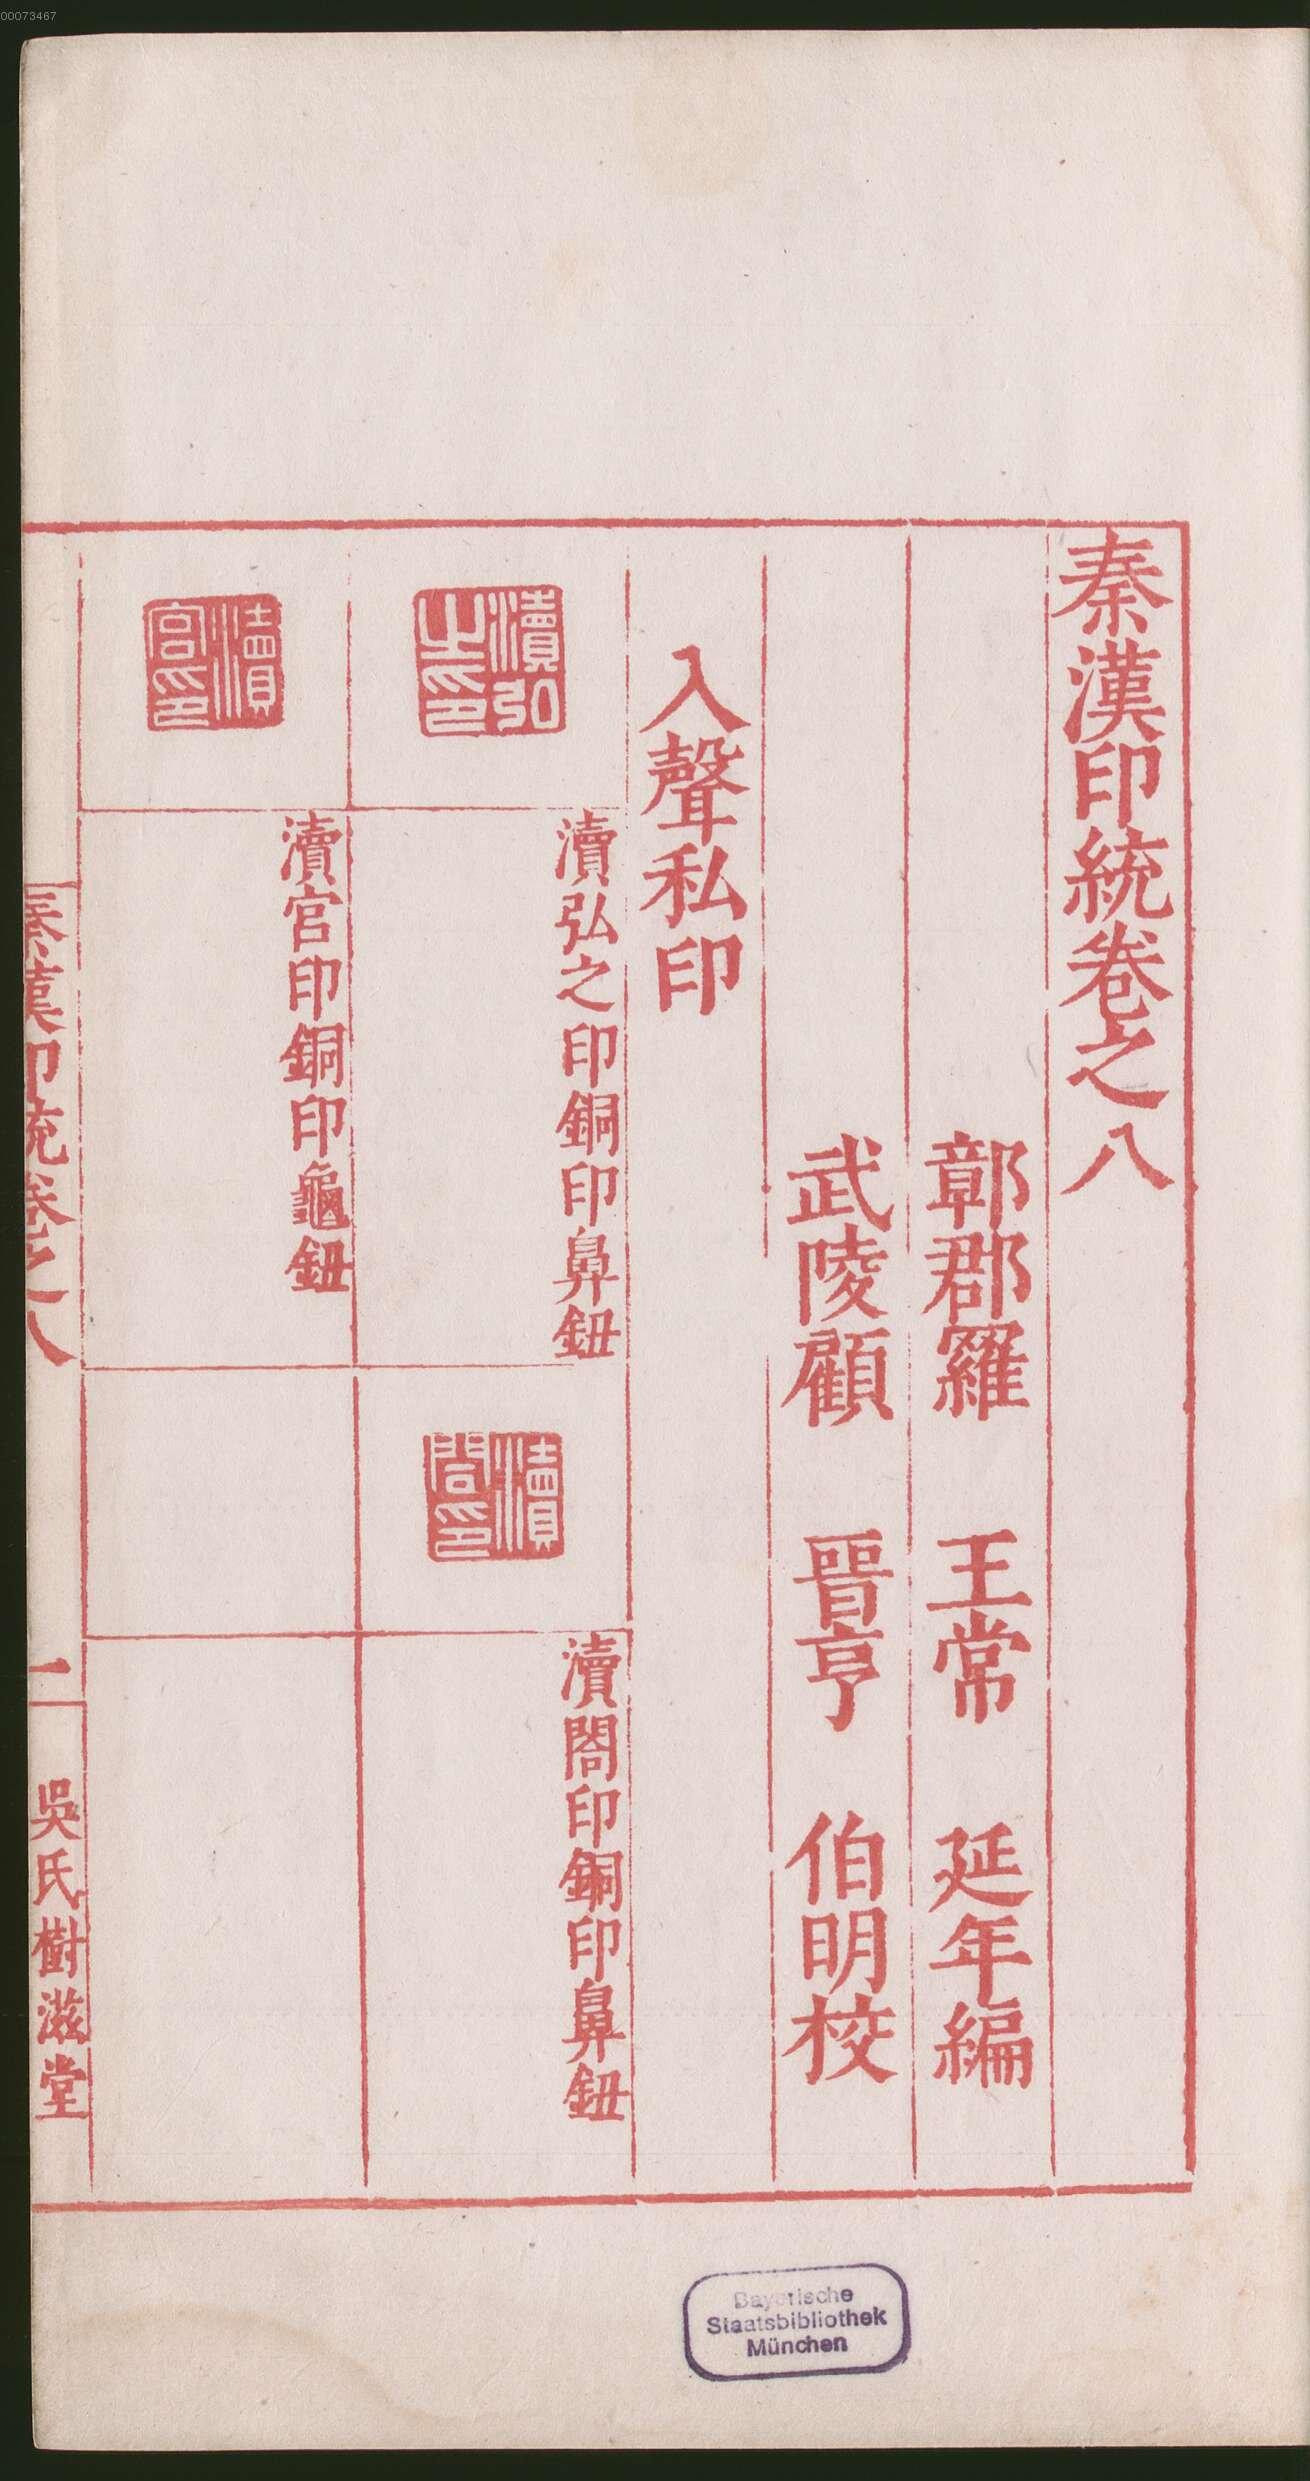 00073467
秦漢印統卷之八
鄣郡羅 王常 延年編
武陵顧 晋亨 伯明校
入聲私印
瀆弘之印
瀆弘之印銅印鼻鈕
瀆閤印
瀆閤印銅印鼻鈕
瀆宮印
瀆宮印銅印龜鈕
秦漢印統卷之八
二
吳氏樹滋堂
Bayerische
Staatsbibliothek
München